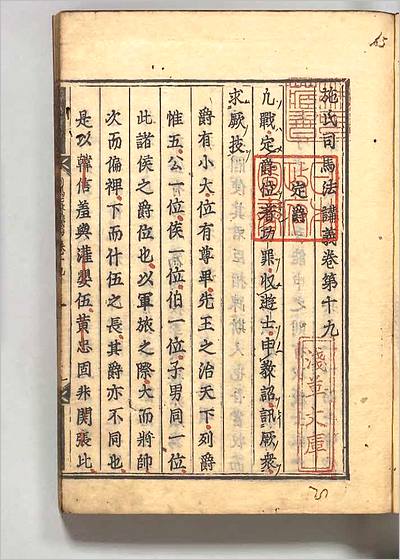 施氏司馬法講義卷第十九
定爵
凡戰定爵位著功罪收遊士申教詔訊厥衆
求厥技
爵有小大位有尊卑先王之治天下列爵
惟五公一位侯一位伯一位子男同一位
此諸侯之爵位也以軍旅之際大而將帥
次而偏裨下而什伍之長其爵亦不同也
是以韓信羞與灌嬰伍黄忠固非関張比
淺草文庫